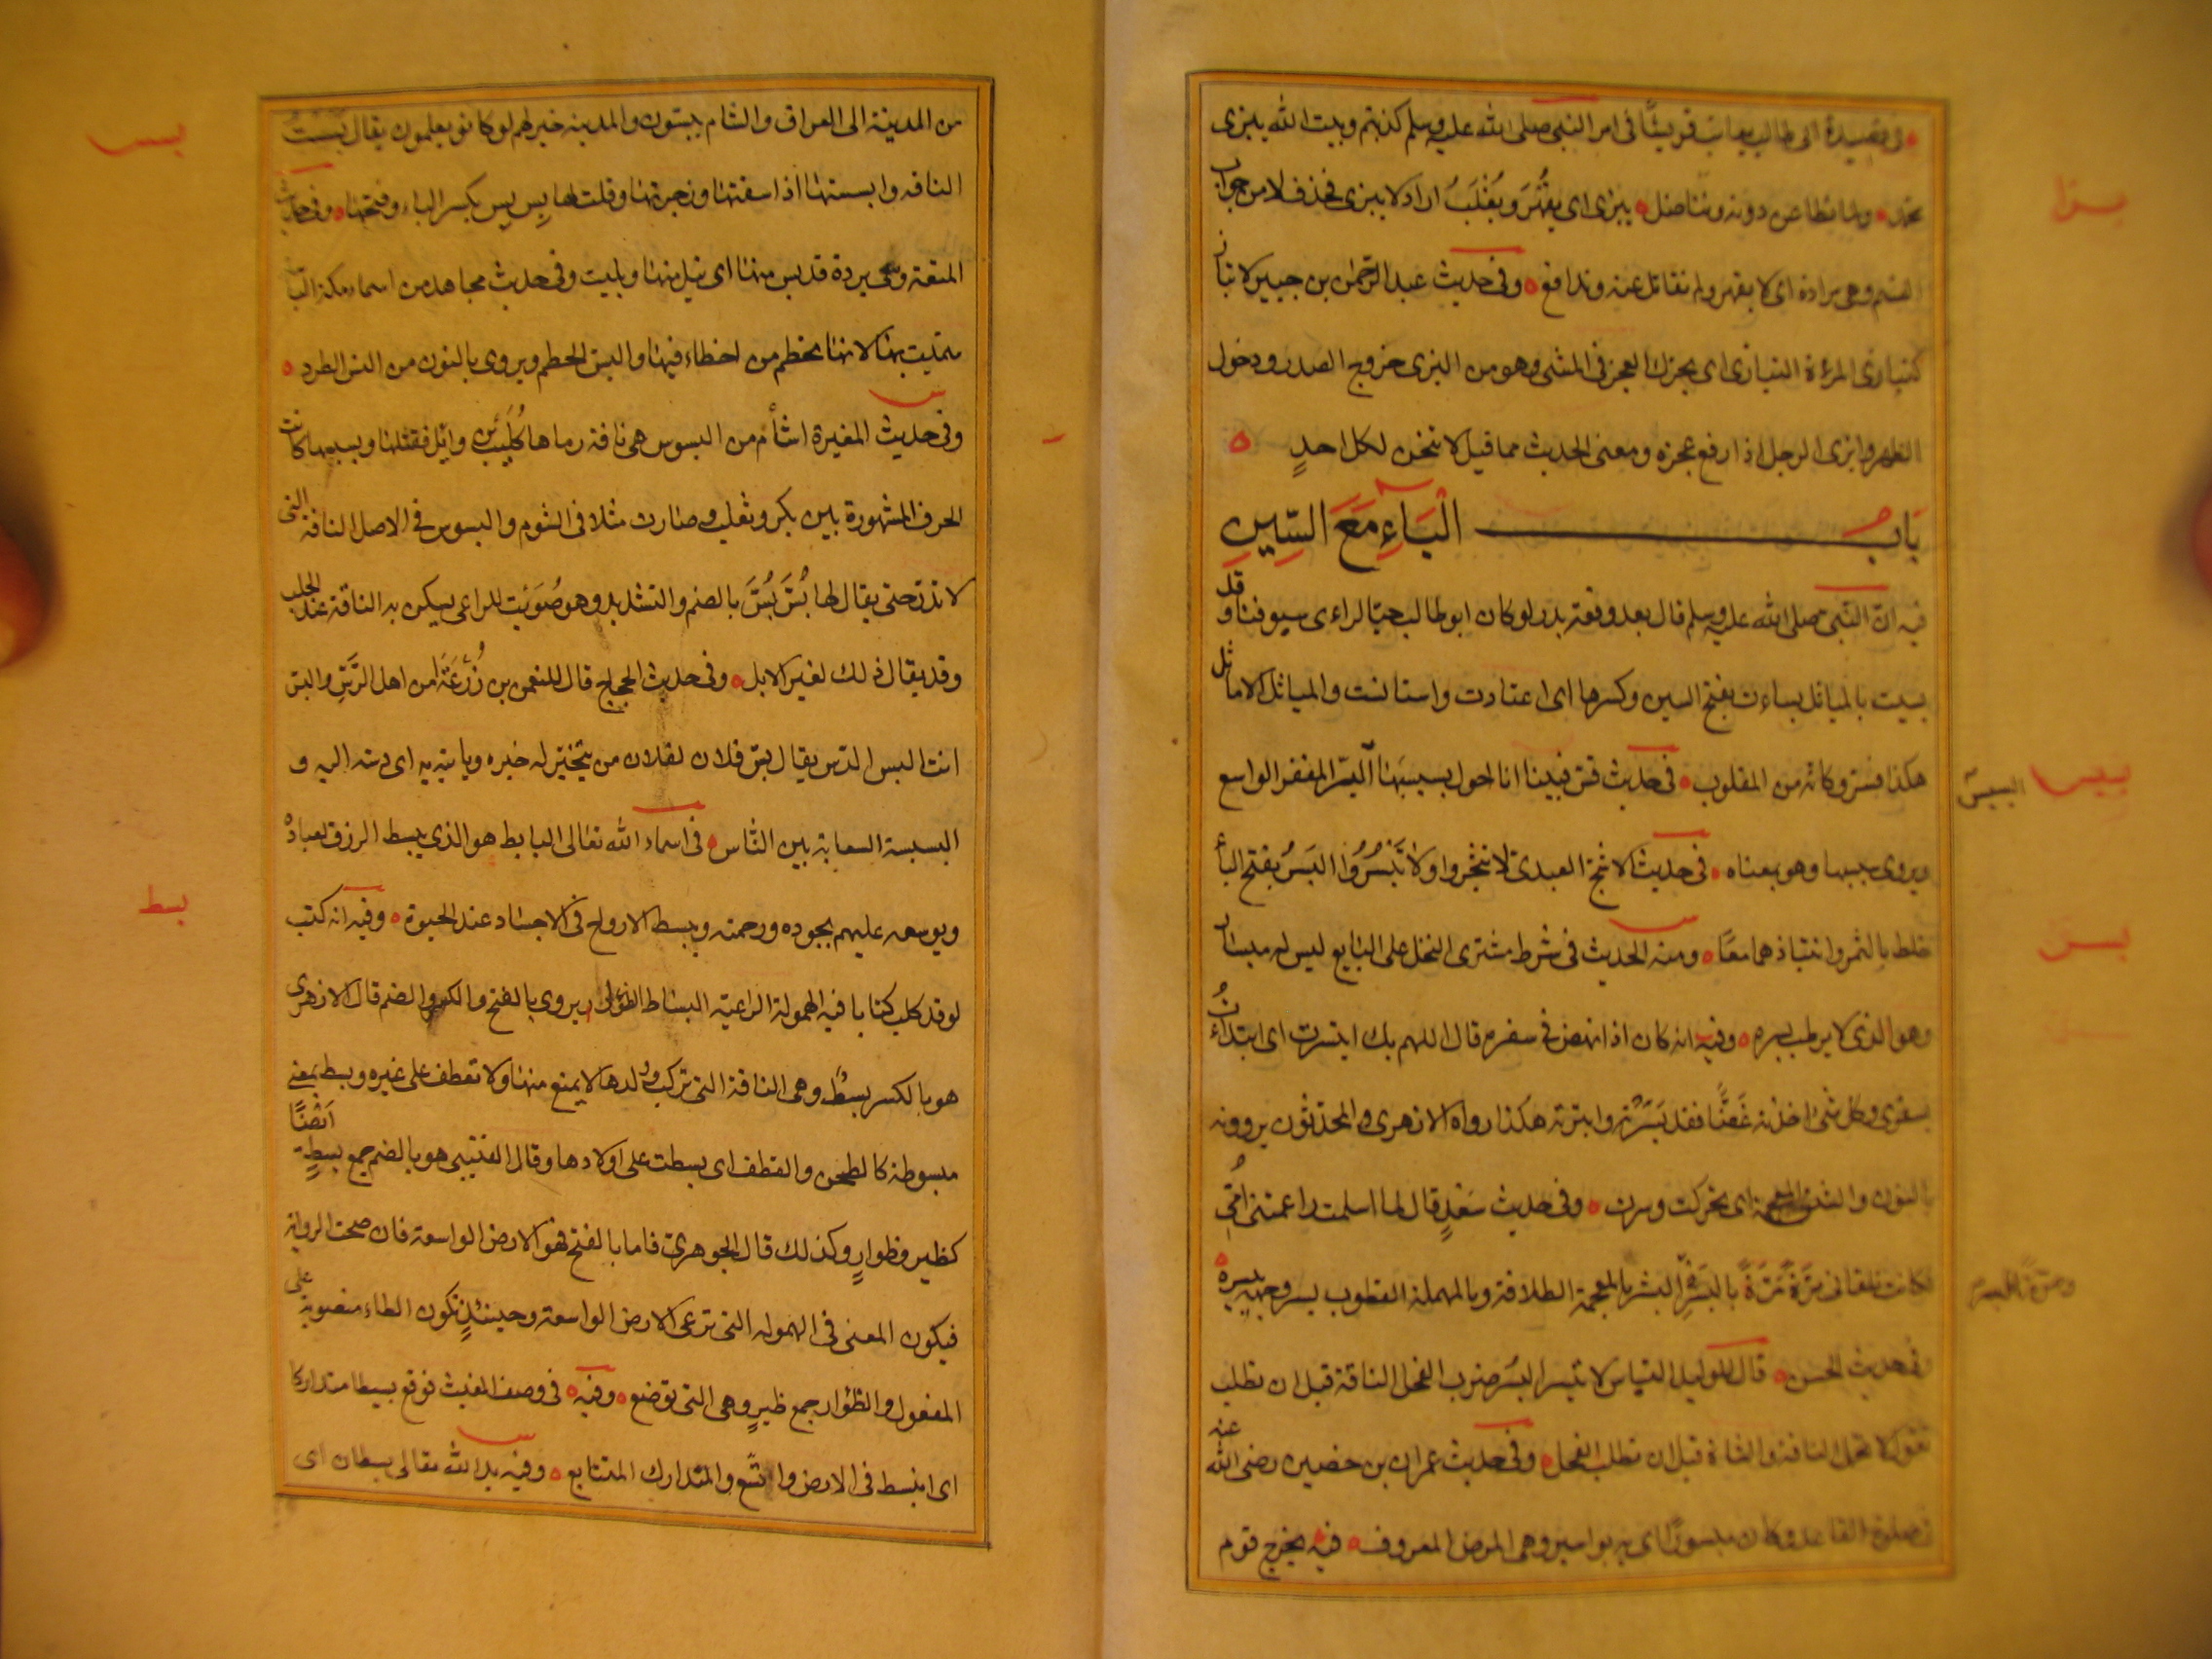 وفي قصيدة ابى طالب يعاتب قريشًا فى امر النبى صلى الله عليه وسلم كذبتم وبيت الله يبزى
محمد ولما نطاعن دونه ونناضل يبزى اى يقهر ويغلب اراد لا يبزى فحذف لا من جواب
القسم وهى مرادة اى لا يقهر ولم نقاتل عنه وندافع وفى حديث عبد الرحمن بن جبير لا تباز
كتبازى المرءة التبازى اى يحرك العجز فى المشى وهو من البزى خروج الصدر ودخول
الظهر وابزى الرجل اذا رفع عجزه ومعنى الحديث مما قيل لا تنحن لكل احدٍ
بَابُ الْبَاءِ مَعَ السِّينِ
فيه انّ النّبى صلى الله عليه وسلم قال بعد وقعة بدر لو كان ابو طالب حيّا لراءى سيوفنا وقد
بسئت بالمياثل بساءت بفتح السين وكسرها اى اعتادت واستانست والمياثل الاماثل
هكذا فسر وكانه من المقلوب فى حديث قس فبينا انا اجول بسبسَبها البسبس القفر الواسع
ويروى سبسبها وهو بمعناه فى حديث الاشج العبدى لا تثجروا ولا تَبْسُرُوا البَسْرُ بفتح الباء
خلط بالتمر وانتباذهما معًا ومنه الحديث فى شرط مشترى النخل على البايع ليس له مبسار
وهو الذى لا يرطب بسره وفيه انه كان اذا نهض فى سفره قال اللهم بك ابتسرت اى ابتدأتُ
بسفرى وكل شئ اخذته غَضًّا فقد بَسَرْتَه وابتسرته هكذا رواه الازهرى والمحدّثون يروونه
بالنون والشين المعجمة اى تحركت وسرت وفى حديث سَعْدٍ قال لما اسلمت راغمتنى امّى
فكانت تلقانى مَرَّةً مَرَّةً بالبِشْرِ البشر بالمعجمة الطلاقة وبالمهملة القطوب بسر وجهه يبسره
وفى حديث الحسن قال للوليد التياس لا تبسر البسر ضرب الفحل الناقة قبل ان تطلب
تقول لا تحمل الناقة والشاة قبل ان تطلب الفحل وفى حديث عمران بن حصين رضى الله عنه
فى صلوة القاعد وكان مبسورًا اى به بواسير وهى المرض المعروف فيه يخرج قوم
بزا
بسس
البسبس
بسر
من المدينة الى العراق والشام يبسّون والمدينه خير لهم لو كانو يعلمون يقال بَسَسْتُ
الناقه وابسستها اذا سقتها وزجرتها وقلت لها بِس بِس بكسر الباء وفتحها وفى حديث
المتعة ومعى بردة قد بس منها اى نيل منها وبليت وفى حديث مجاهد من اسماء مكة الباسة
سمّيت بها لانها تحطم من اخطاء فيها والبسّ الحطم ويروى بالنون من النس الطرد
وفى حديث المغيرة اشأم من البسوس هى ناقة رماها كُلَيْب بن وائل فقتلها وبسببها كانت
الحرف المشهورة بين بكر وتغلب وصارت مثلا فى الشوم والبسوس فى الاصل الناقة التى
لا تدرّ حتى يقال لها بُسَّ بُسَّ بالضم والتشديد وهو صُوَيْت للراعى يسكن به الناقة عند الحلب
وقد يقال ذلك لغير الابل وفى حديث الحجاج قال للنعمن بن زُرْعَةَ امن اهل الرَّسِّ والبس
انت البس الدّس يقال بسّ فلان لفلان من يتخبّر له خبره وياتيه به اى دسّه اليه و
البسبسة السعاية بين النّاس فى اسماء الله تعالى الباسط هو الذى يبسط الرزق لعباده
ويوسعه عليهم بجوده ورحمته ويبسط الارواح فى الاجساد عند الحيوة وفيه انه كتب
لوفد كلب كتابا فيه الهمولة الراعية البساط الظؤار يروى بالفتح والكسر والضم قال الازهرى
هو بالكسر بِسْط وهى الناقة التى تركت ولدها لا يمنع منها ولا تعطف على غيره وبسط بمعنى
مبسوطة كالطحن والقطف اى بسطت على اولادها وقال القتيبى هو بالضم جمع بسطٍ ايضًا
كظير وظوارٍ وكذلك قال الجوهرى فاما بالفتح فهو الارض الواسعة فان صحت الرواية
فيكون المعنى فى الهموله التى ترعى الارض الواسعة وحينئذٍ تكون الطاء منصوبة على
المفعول والظؤار جمع ظيرٍ وهى التى توضع وفيه فى وصف الغيث فوقع بسيطا متداركا
اى انبسط فى الارض واتسّع والمتدارك المتتابع وفيه يد الله تعالى بسطان اى
بسس
بسط